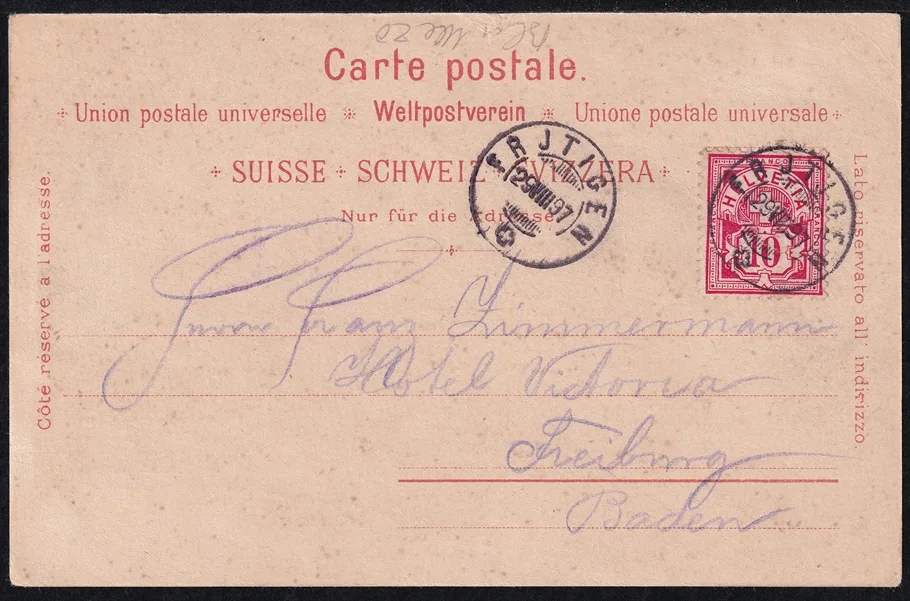 Carte postale.
Union postale universelle * Weltpostverein * Unione postale universale
SUISSE + SCHWEIZ + SVIZZERA
Nur für die Adresse.
Côté réservé à l'adresse.
Lato riservato all' indirizzo.
FRUTIGEN
29 VIII 97
FRANCO
HELVETIA
10
FRUTIGEN
29 VIII 97
Herrn Franz Zimmermann
Hôtel Victoria
Freiburg
Baden